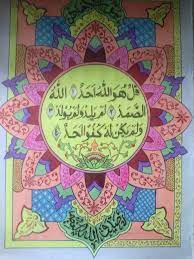 قُلْ هُوَ اللّٰهُ اَحَدٌ اَللّٰهُ
الصَّمَدُ لَمْ يَلِدْ وَلَمْ يُولَدْ
وَلَمْ يَكُنْ لَهُ كُفُوًا اَحَدٌ